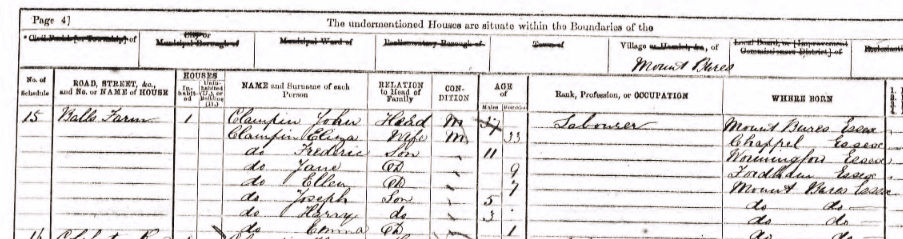 Page 4]
The undermentioned Houses are situate within the Boundaries of the
Civil Parish [or Township] of
City or
Municipal Borough of
Municipal Ward of
Parliamentary Borough of
Town of
Village or Hamlet, &c., of
Mount Bures
Local Board, or [Improvement
Commissioners District] of
Ecclesiastical
No. of
Schedule
ROAD, STREET, &c.,
and No. or NAME of HOUSE
HOUSES
In-
habit-
ed
Unin-
habited
(U.), or
Building
(B.)
NAME and Surname of each
Person
RELATION
to Head of
Family
CON-
DITION
AGE
of
Males
Females
Rank, Profession, or OCCUPATION
WHERE BORN
15 Balls Farm 1 Clampin John Head M 37 Labourer Mount Bures Essex
Clampin Eliza Wife M 33 Chappel Essex
do Frederic Son 11 Wormingford Essex
do Jane D 9 Fordham Essex
do Ellen D 7 Mount Bures Essex
do Joseph Son 5 do do
do Harry do 3 do do
do Emma D 1 do do
16